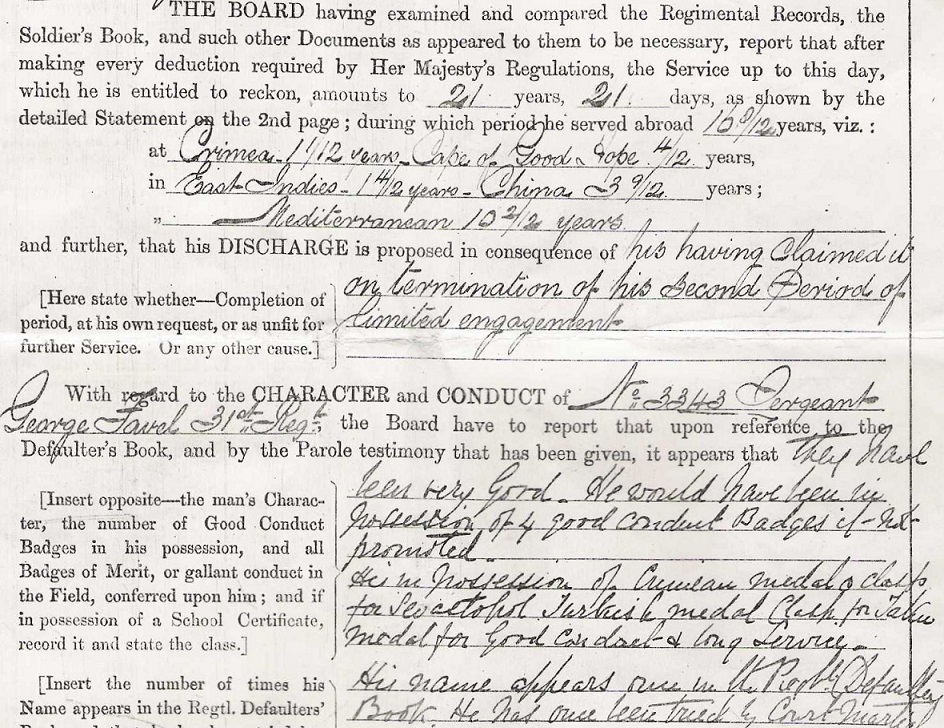 THE BOARD having examined and compared the Regimental Records, the
Soldier's Book, and such other Documents as appeared to them to be necessary, report that after
making every deduction required by Her Majesty's Regulations, the Service up to this day,
which he is entitled to reckon, amounts to 21 years, 21 days, as shown by the
detailed Statement on the 2nd page; during which period he served abroad years, viz.:
at Crimea 1 1/12 years - Cape of Good Hope 4/12 years,
in East Indies - 1 4/12 years - China 3 9/12 years;
„ Mediterranean 10 2/12 years
and further, that his DISCHARGE is proposed in consequence of his having Claimed it
on termination of his Second Period of
limited engagement
[Here state whether—Completion of
period, at his own request, or as unfit for
further Service. Or any other cause.]
With regard to the CHARACTER and CONDUCT of No. 3343 Sergeant
George Favel 31st Regt. the Board have to report that upon reference to the
Defaulter's Book, and by the Parole testimony that has been given, it appears that they have
been very Good. He would have been in
possession of 4 good conduct Badges if not
promoted
His in Possession of Crimean medal & clasp
for Sevastopol Turkish medal Clasp for Taku
Medal for Good Conduct & long Service.
[Insert opposite—the man's Charac-
ter, the number of Good Conduct
Badges in his possession, and all
Badges of Merit, or gallant conduct in
the Field, conferred upon him; and if
in possession of a School Certificate,
record it and state the class.]
[Insert the number of times his
Name appears in the Regtl. Defaulters'
His name appears once in the Regtl Defaulters
Book. He has once been tried by Court Martial